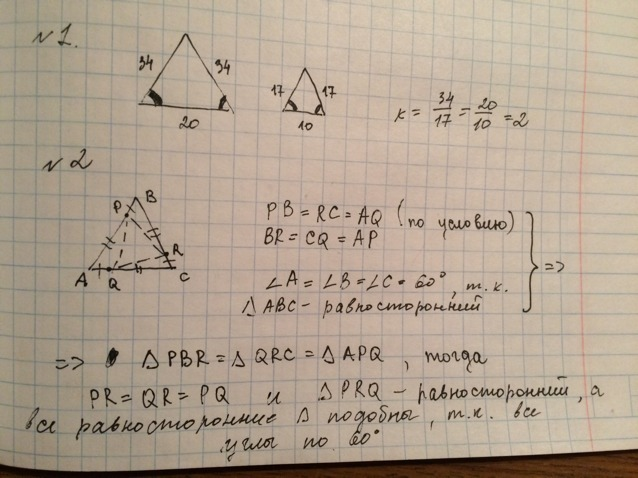 №1.
34 34
20
17 17
10
к = 34/17 = 20/10 = 2
№2
P B
R
A Q C
PB = RC = AQ (по условию)
BR = CQ = AP
∠A = ∠B = ∠C = 60°, т.к.
△ABC - равносторонний
=>
=> △PBR = △QRC = △APQ, тогда
PR = QR = PQ и △PRQ - равносторонний, а
все равносторонние △ подобны, т.к. все
углы по 60°